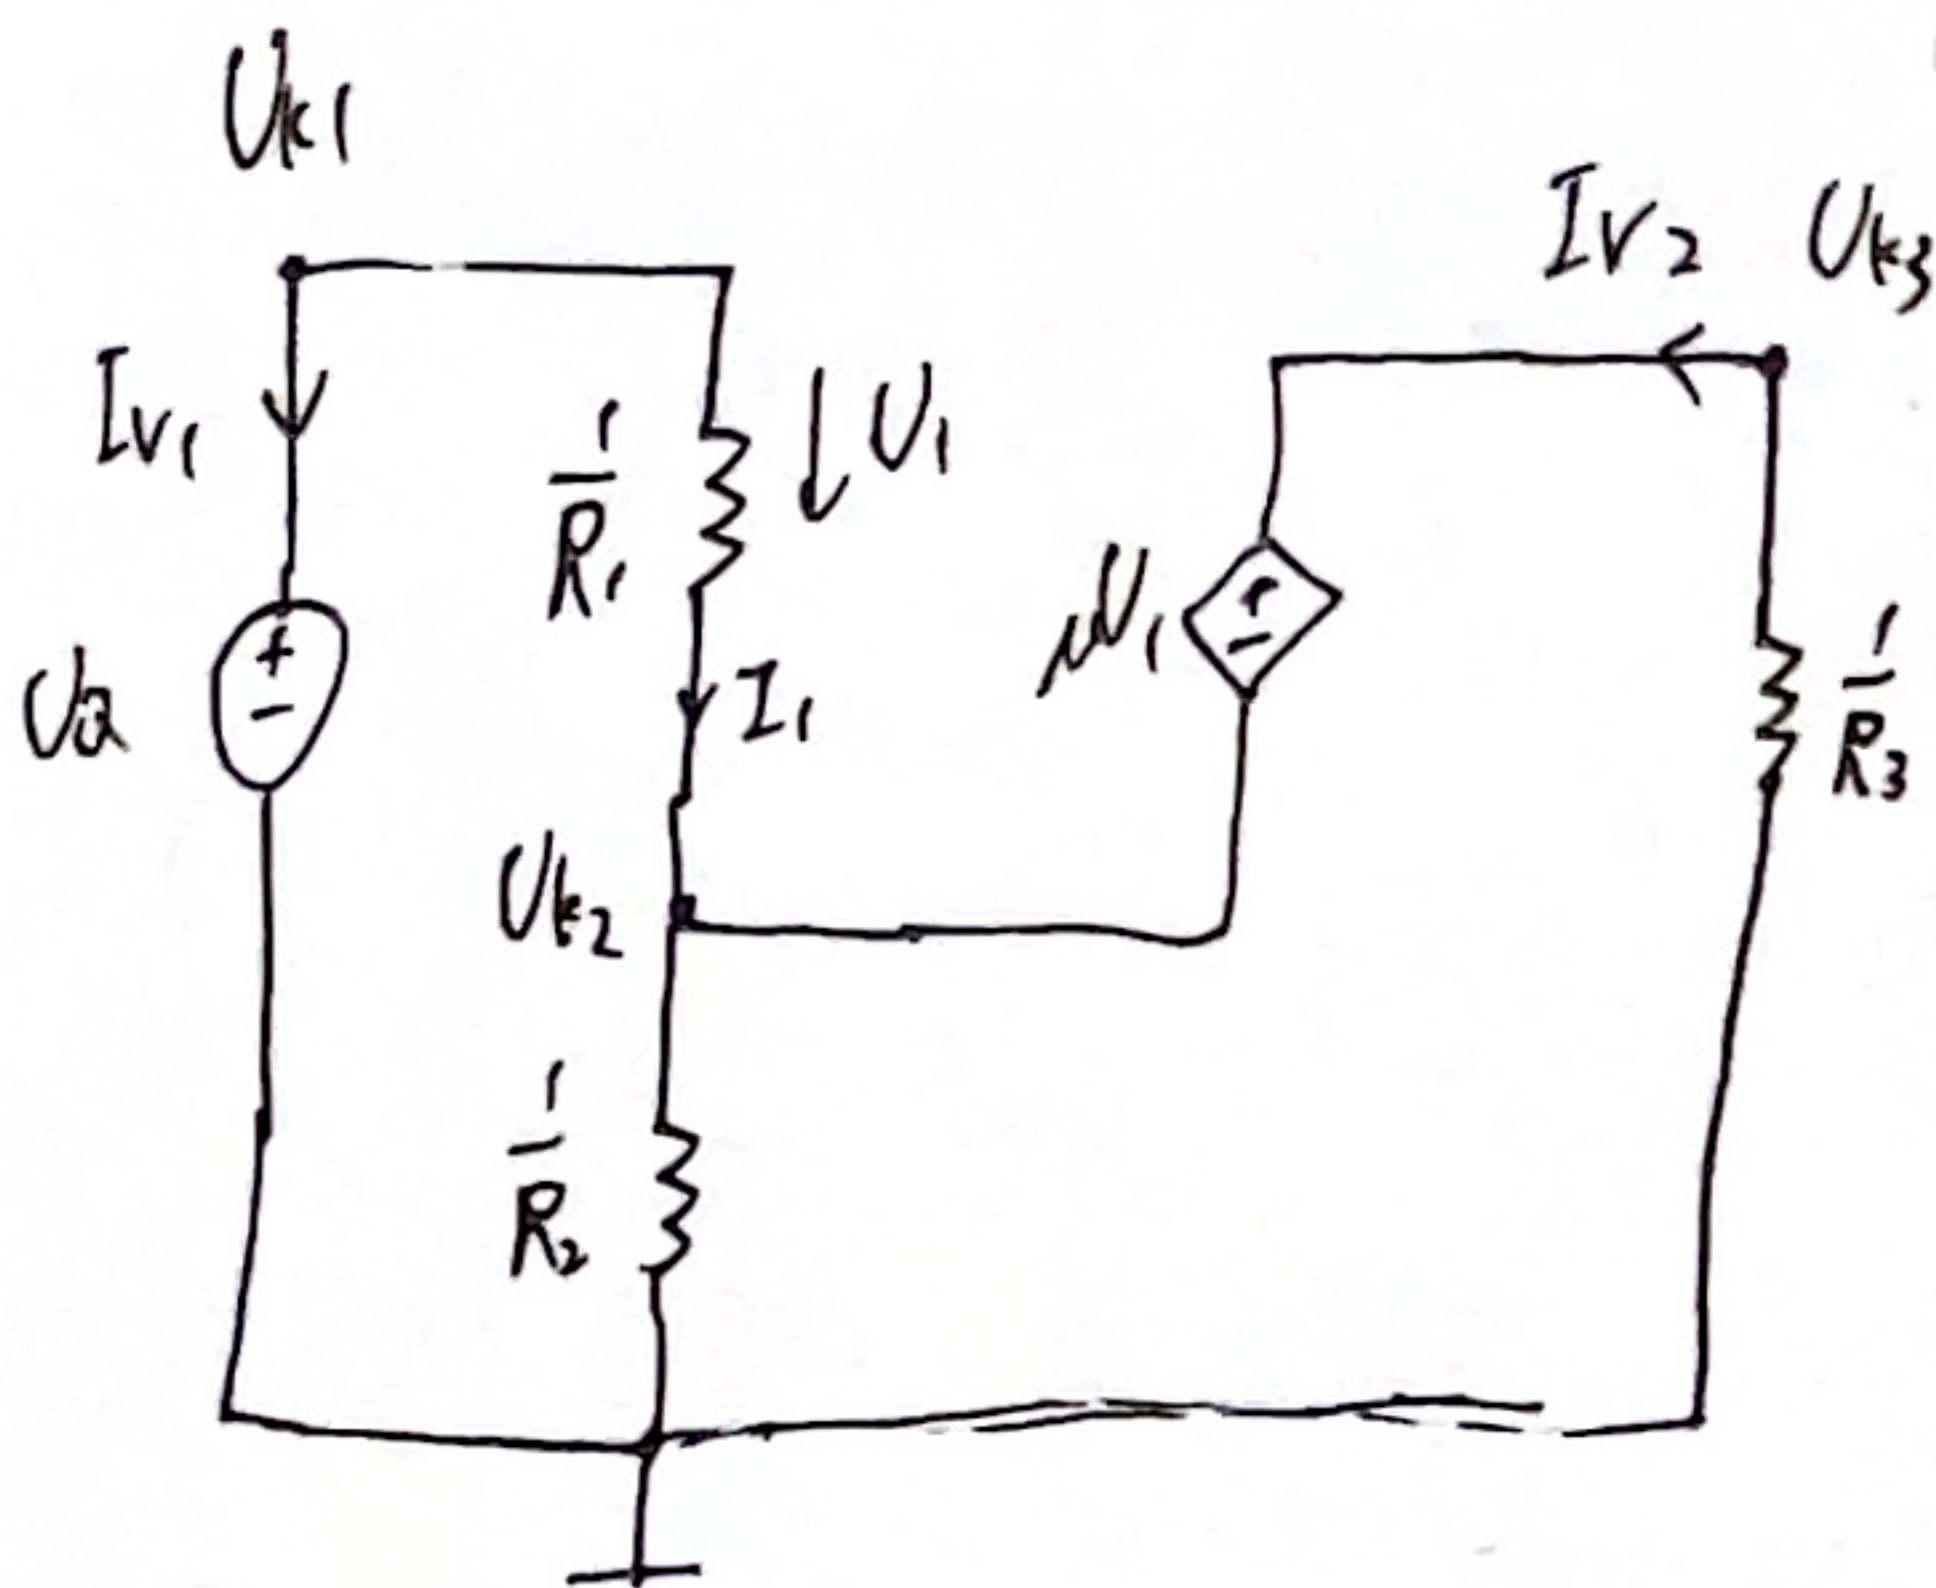 Uk1
Iv2 Uk3
Iv1
1/R1
U1
μU1
UQ
+
-
+
-
1/R3
I1
Uk2
1/R2